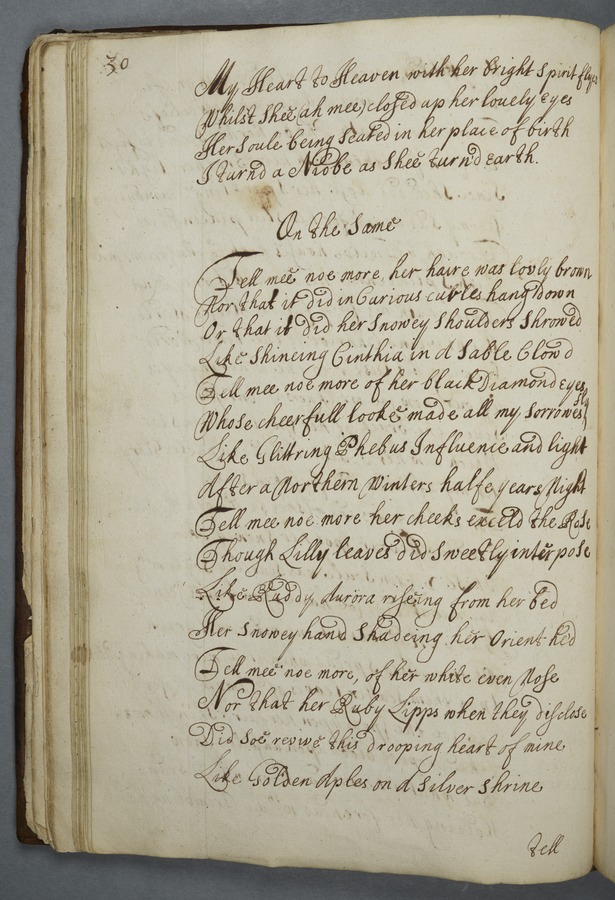 30
My Heart to Heaven with her bright spirit flyes
Whilst shee (ah mee) closed up her louely eyes
Her soule being seated in her place of birth
I turnd a Niobe as shee turn'd earth.
On the same
Tell mee noe more, her haire was lovly brown
Nor that it did in Curious curles hang down
Or that it did her snowey shoulders shrowd
Like shineing Cinthia in a sable Clowd
Tell mee noe more of her black Diamond eyes
Whose cheerfull looke made all my sorrowes fly
Like Glittring Phebus Influence and light
After a Northern Winters halfe years Night
Tell mee noe more her cheeks exceld the Rose
Though Lilly leaves did sweetly interpose
Like Ruddy Aurora riseing from her bed
Her snowey hand shadeing her orient hed
Tell mee noe more, of her white even Nose
Nor that her Ruby Lipps when they disclose
Did soe revive this drooping heart of mine
Like Golden Aples on a silver shrine
Tell